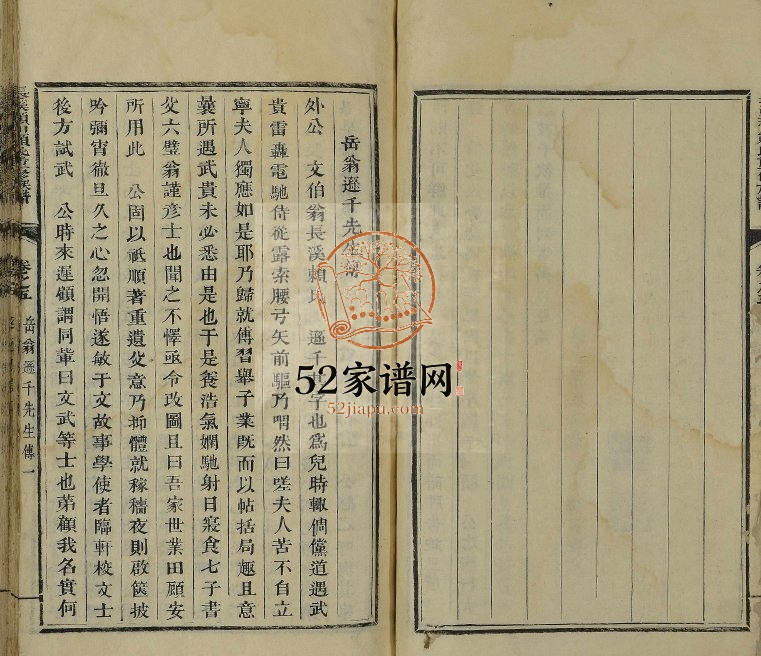 岳翁遜千先生傳
外公 文伯翁長溪賴氏 遜千 字也爲兒時輙倜儻道遇武
貴雷轟電馳侍從露索腰弓矢前驅乃喟然曰嗟夫人苦不自立
寧夫人獨應如是耶乃歸就傅習舉子業既而以帖括局趣且意
曩所遇武貴未必悉由是也于是養浩氣嫻馳射日寢食七子書
父六璧翁謹彥士也聞之不懌亟令改圖且曰吾家世業田顧安
所用此 公固以祗順著重遺父意乃抑體就稼穡夜則啟篋披
吟彌宵徹旦久之心忽開悟遂敏于文故事學使者臨軒校文士
後方試武 公時來遲顧謂同輩曰文武等士也苐顧我名實何
卷之五
岳翁遜千先生傳一
52家谱网
52jiapu.com